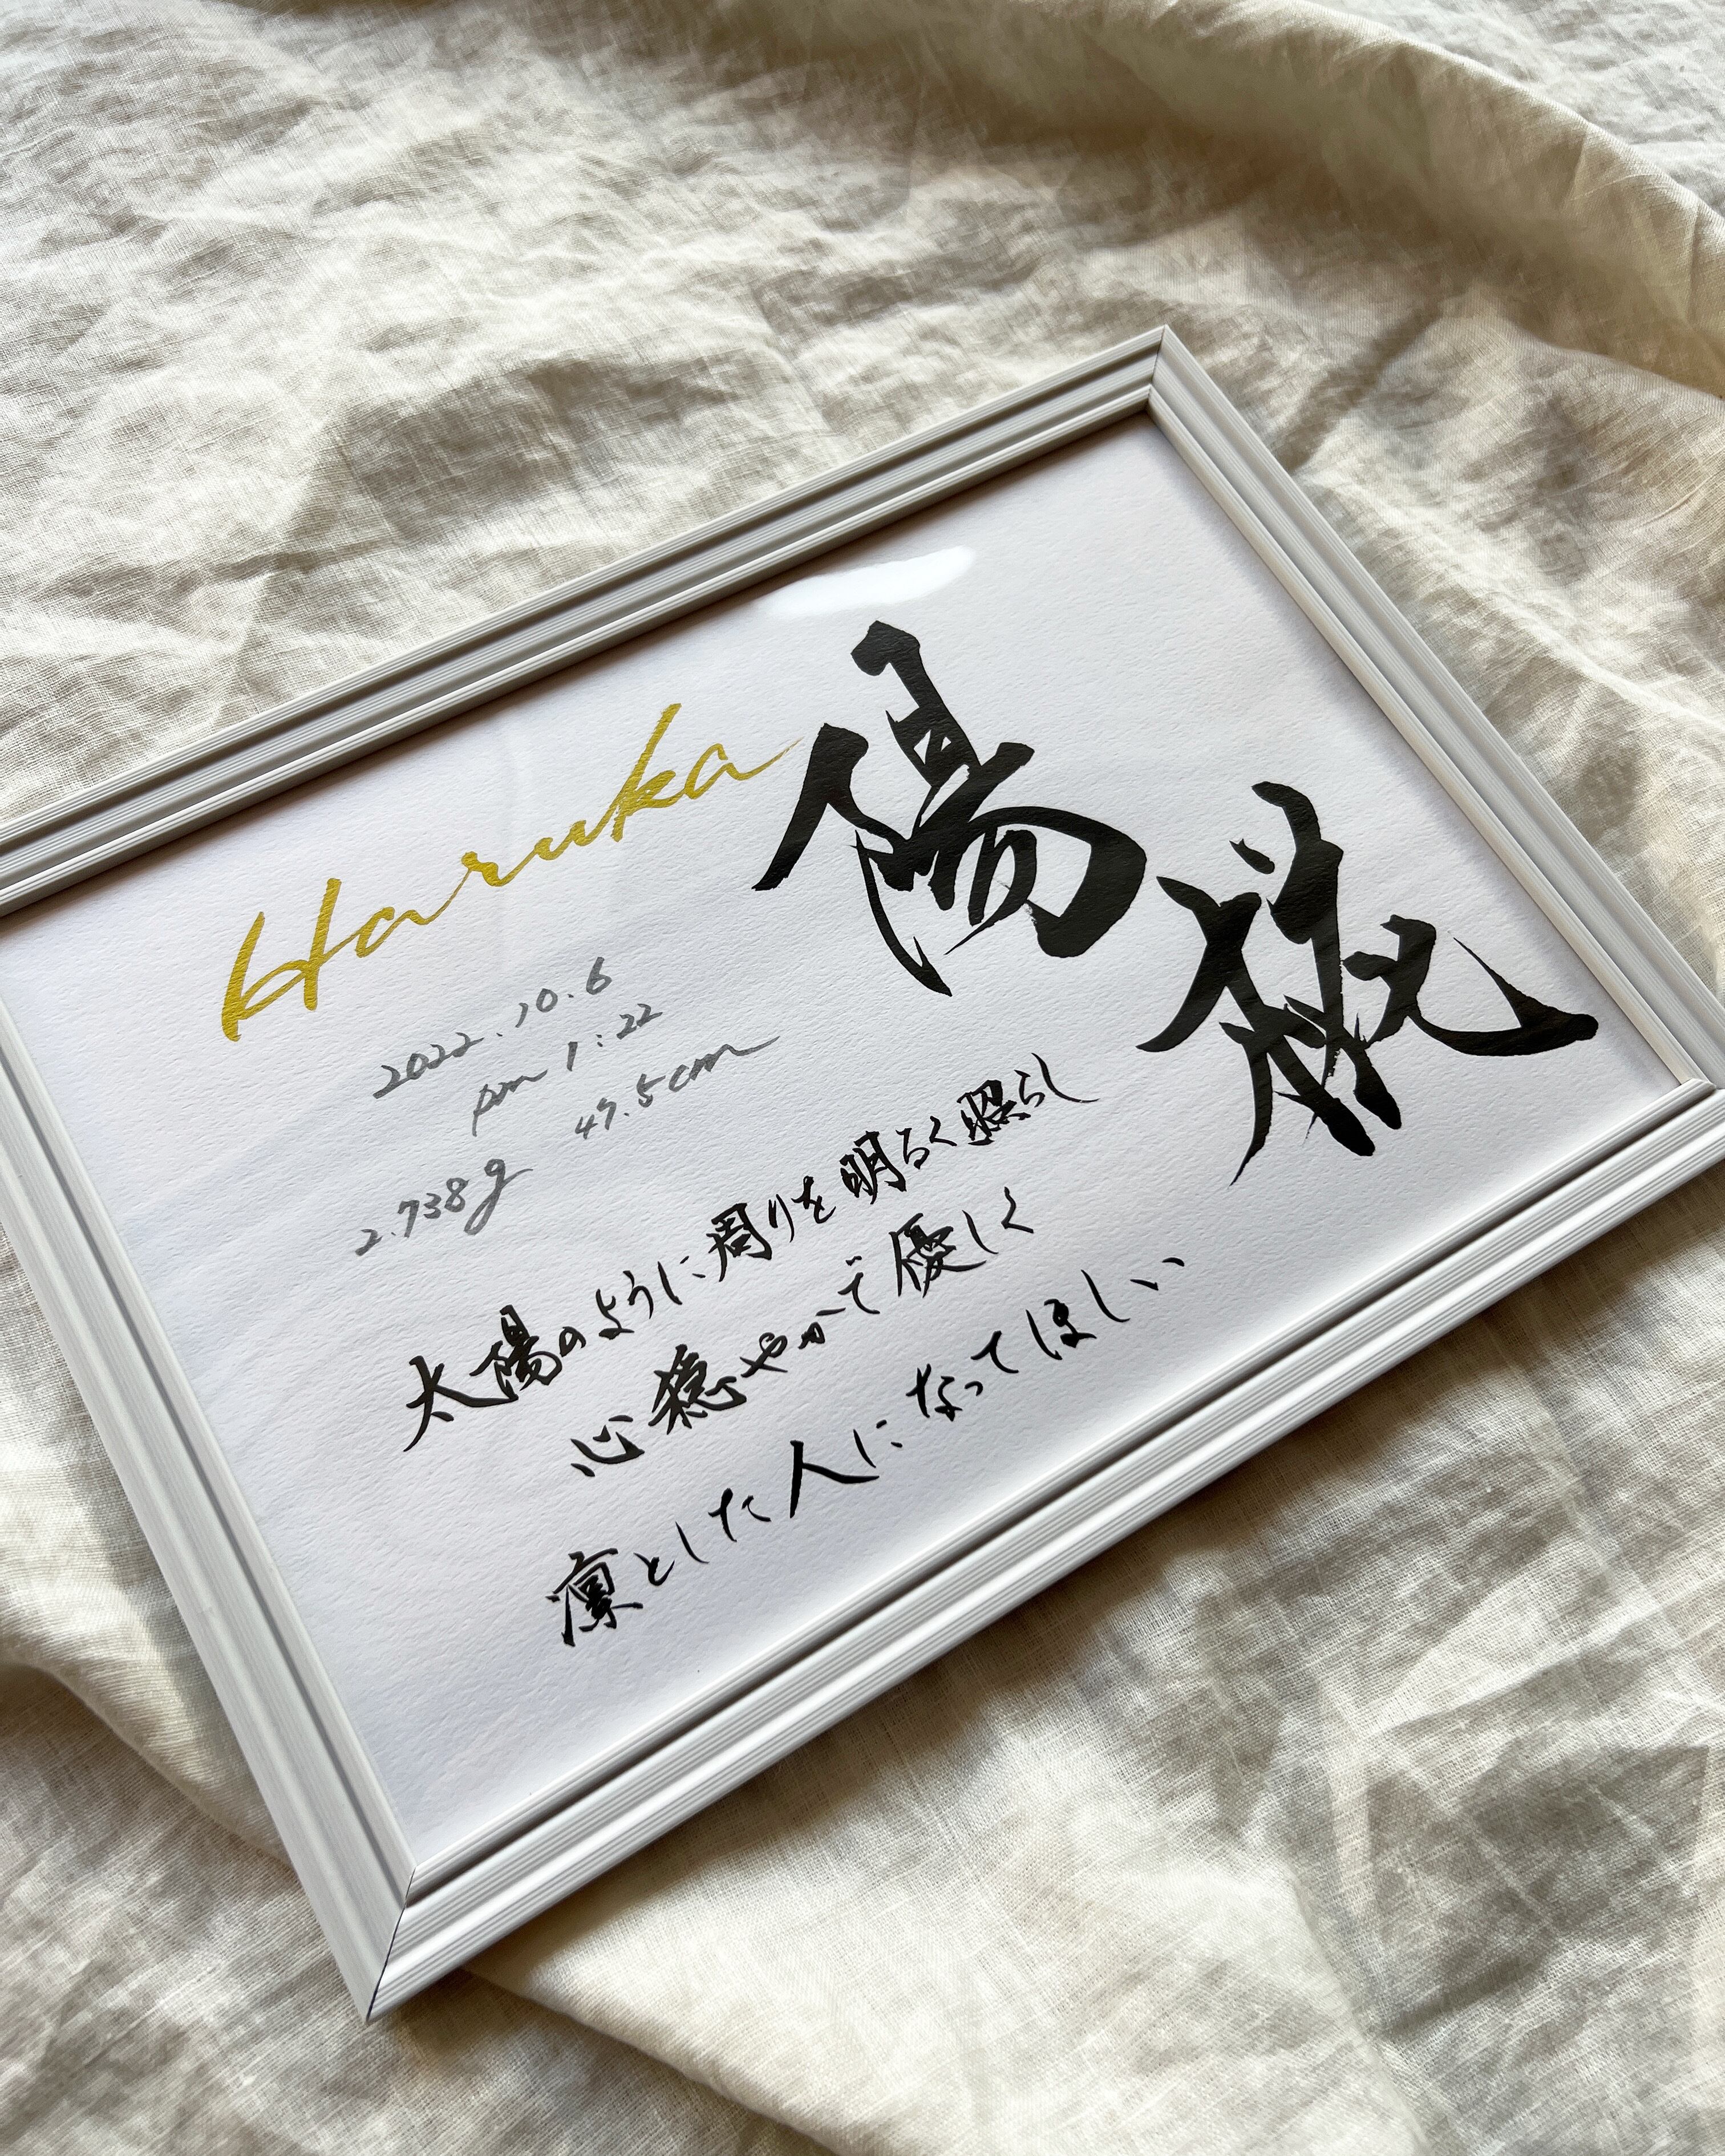 陽椛
Haruka
2022.10.6
pm 1:22
2.738g 47.5cm
太陽のように周りを明るく照らし
心穏やかで優しく
凛とした人になってほしい